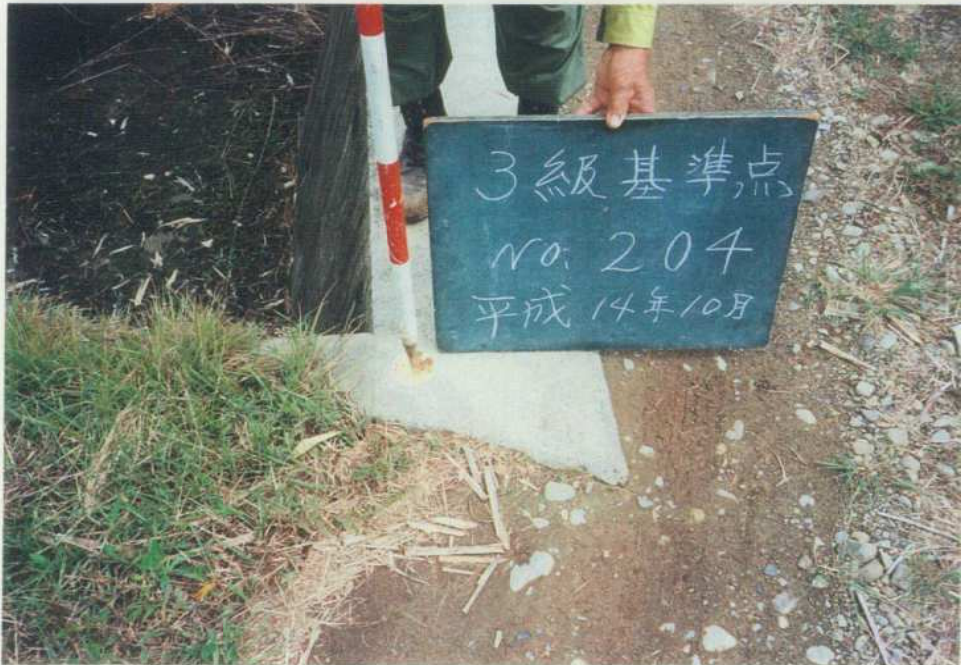 3級基準点
No. 204
平成14年10月